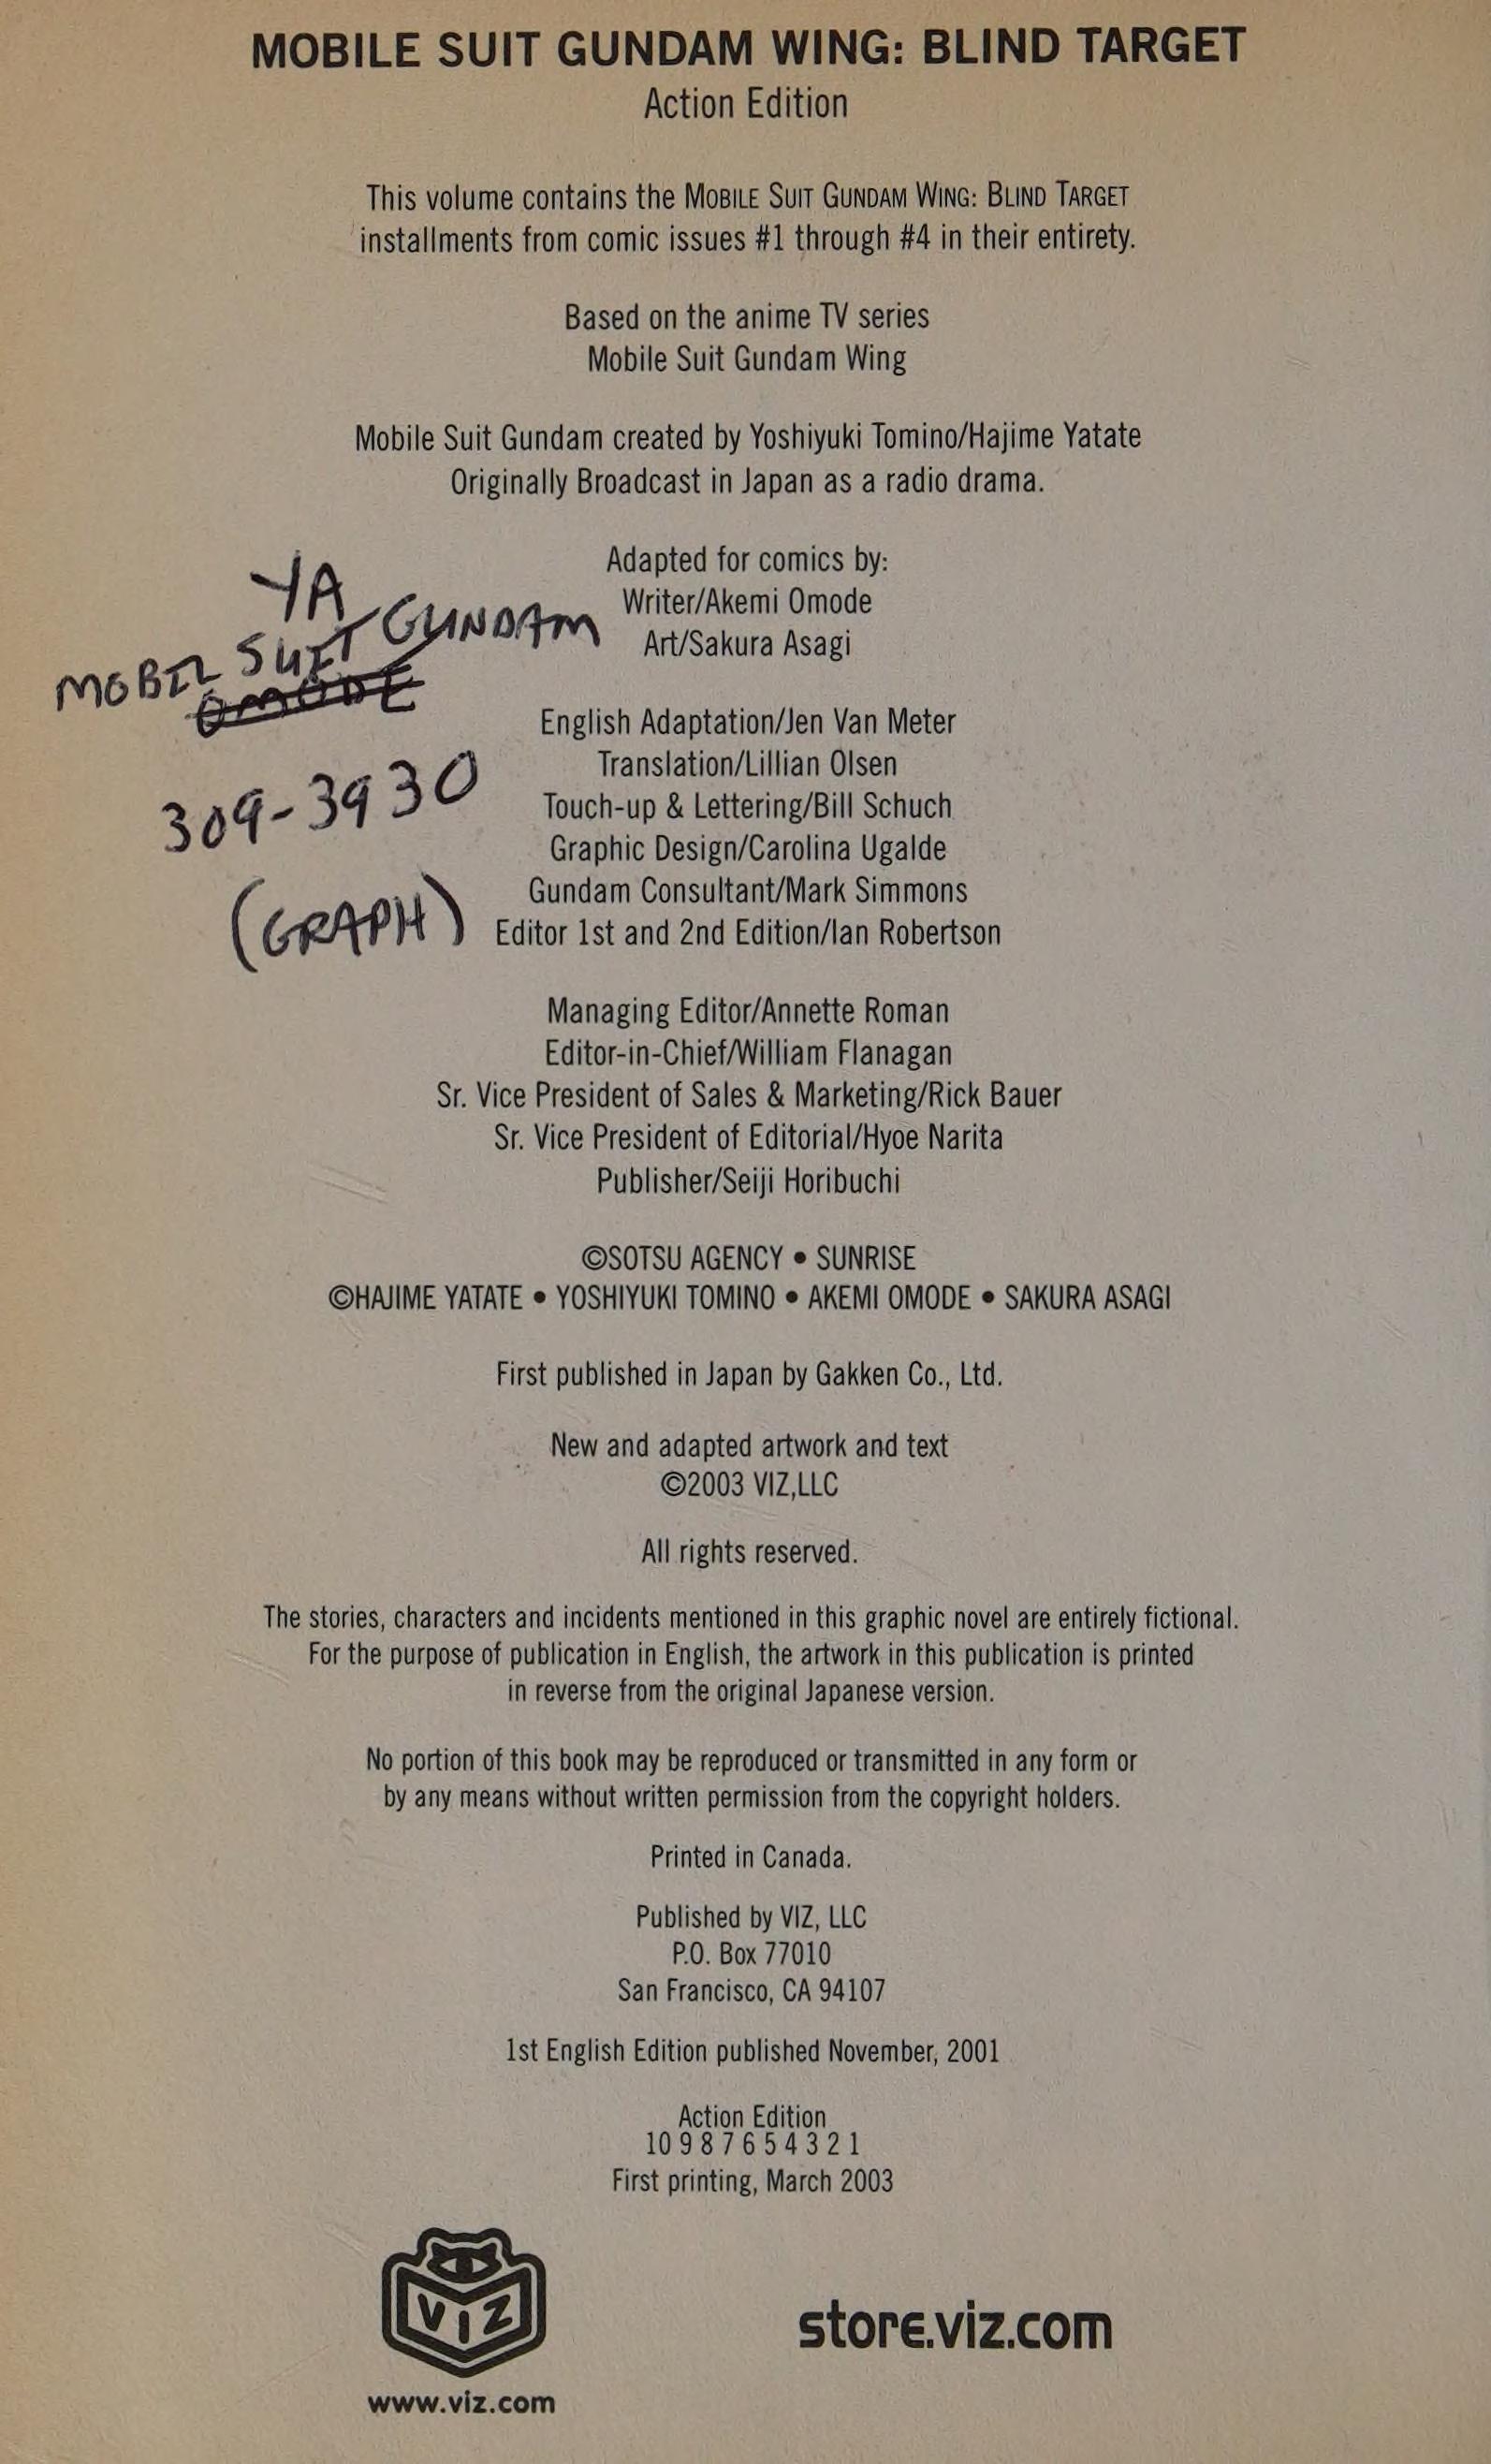 MOBILE SUIT GUNDAM WING: BLIND TARGET
Action Edition
This volume contains the MOBILE SUIT GUNDAM WING: BLIND TARGET
installments from comic issues #1 through #4 in their entirety.
Based on the anime TV series
Mobile Suit Gundam Wing
Mobile Suit Gundam created by Yoshiyuki Tomino/Hajime Yatate
Originally Broadcast in Japan as a radio drama.
Adapted for comics by:
Writer/Akemi Omode
Art/Sakura Asagi
YA
MOBIL SUIT GUNDAM
OMODE
309-3930
(GRAPH)
English Adaptation/Jen Van Meter
Translation/Lillian Olsen
Touch-up & Lettering/Bill Schuch
Graphic Design/Carolina Ugalde
Gundam Consultant/Mark Simmons
Editor 1st and 2nd Edition/Ian Robertson
Managing Editor/Annette Roman
Editor-in-Chief/William Flanagan
Sr. Vice President of Sales & Marketing/Rick Bauer
Sr. Vice President of Editorial/Hyoe Narita
Publisher/Seiji Horibuchi
©SOTSU AGENCY • SUNRISE
©HAJIME YATATE • YOSHIYUKI TOMINO • AKEMI OMODE • SAKURA ASAGI
First published in Japan by Gakken Co., Ltd.
New and adapted artwork and text
©2003 VIZ,LLC
All rights reserved.
The stories, characters and incidents mentioned in this graphic novel are entirely fictional.
For the purpose of publication in English, the artwork in this publication is printed
in reverse from the original Japanese version.
No portion of this book may be reproduced or transmitted in any form or
by any means without written permission from the copyright holders.
Printed in Canada.
Published by VIZ, LLC
P.O. Box 77010
San Francisco, CA 94107
1st English Edition published November, 2001
Action Edition
10 9 8 7 6 5 4 3 2 1
First printing, March 2003
VIZ
www.viz.com
store.viz.com